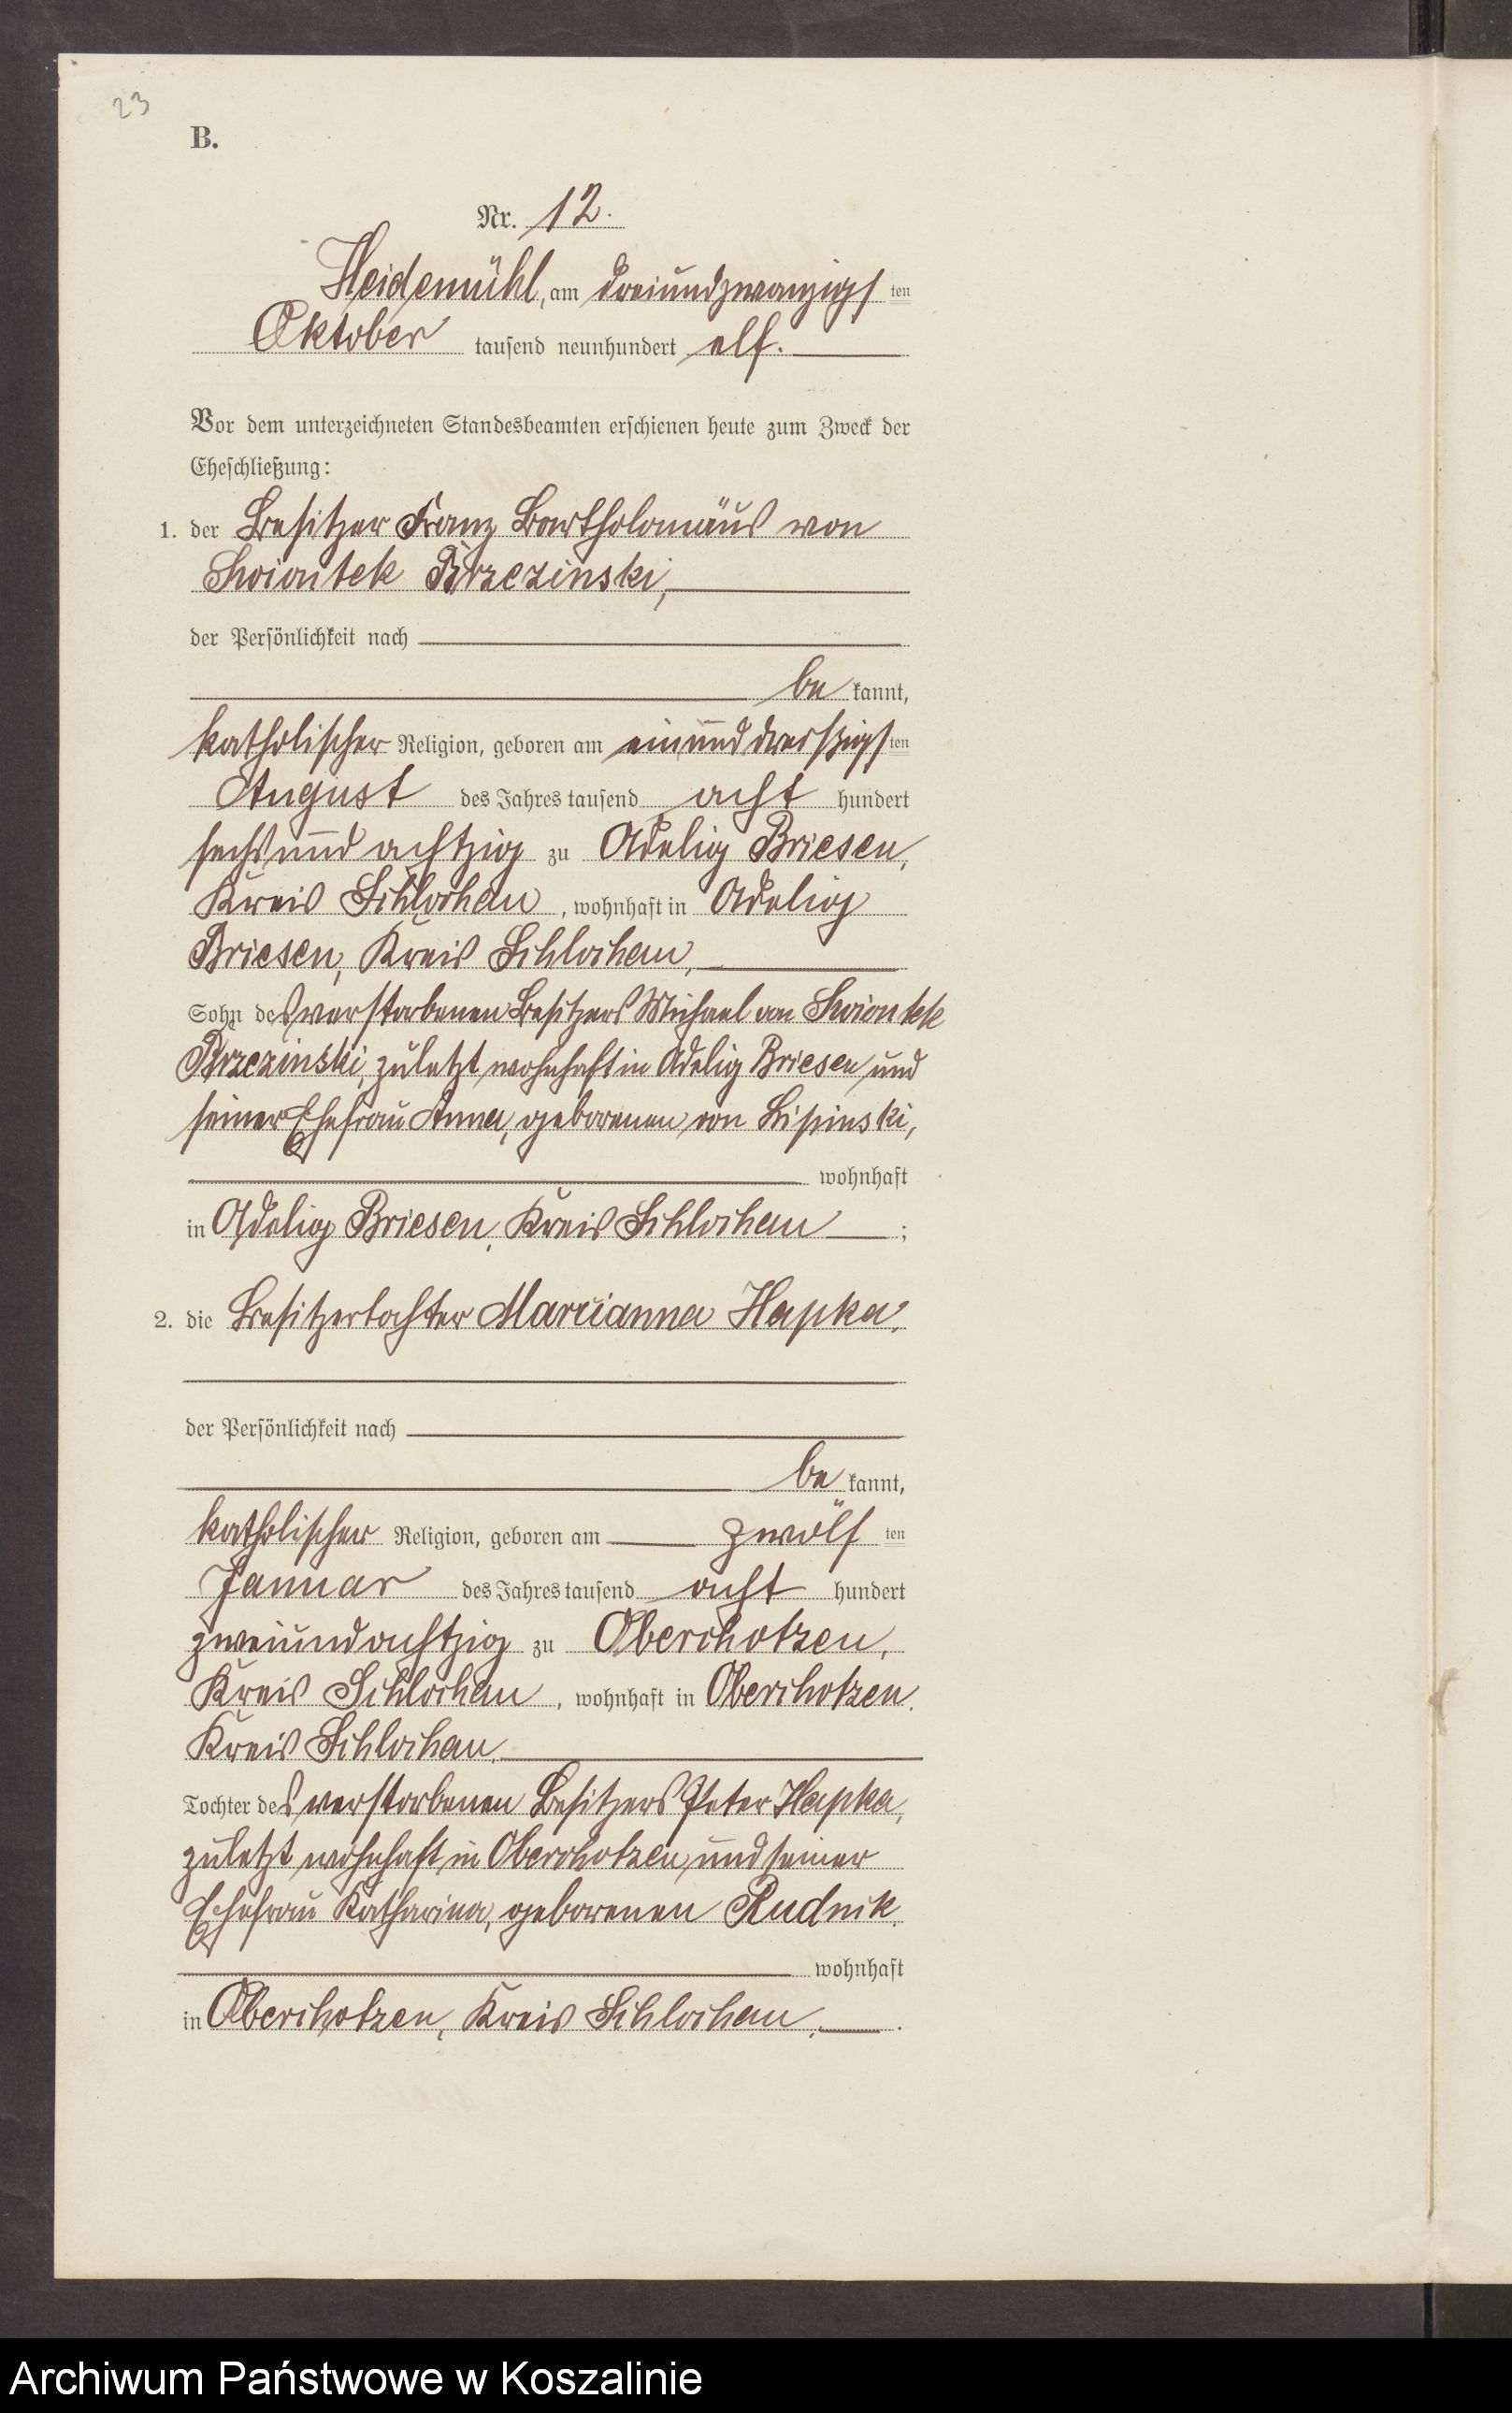 23
B.
Nr. 12.
Heidemühl, am dreiundzwanzigsten
Oktober tausend neunhundert elf.
Vor dem unterzeichneten Standesbeamten erschienen heute zum Zweck der
Eheschließung:
1. der Besitzer Franz Bartholomäus von
Swiontek Brzezinski,
der Persönlichkeit nach
be kannt,
katholischer Religion, geboren am einunddreißigsten
August des Jahres tausend acht hundert
sechsundachtzig zu Adelig Briesen,
Kreis Schlochau, wohnhaft in Adelig
Briesen, Kreis Schlochau,
Sohn des verstorbenen Besitzers Michael von Swiontek
Brzezinski, zuletzt wohnhaft in Adelig Briesen und
seiner Ehefrau Anna, geborenen von Lipinski,
wohnhaft
in Adelig Briesen, Kreis Schlochau;
2. die Besitzertochter Marcianna Hapka,
der Persönlichkeit nach
be kannt,
katholischer Religion, geboren am zwölf ten
Januar des Jahres tausend acht hundert
zweiundachtzig zu Oberchotzen,
Kreis Schlochau, wohnhaft in Oberchotzen,
Kreis Schlochau,
Tochter des verstorbenen Besitzers Peter Hapka,
zuletzt wohnhaft in Oberchotzen, und seiner
Ehefrau Katharina, geborenen Rudnik,
wohnhaft
in Oberchotzen, Kreis Schlochau,.
Archiwum Państwowe w Koszalinie